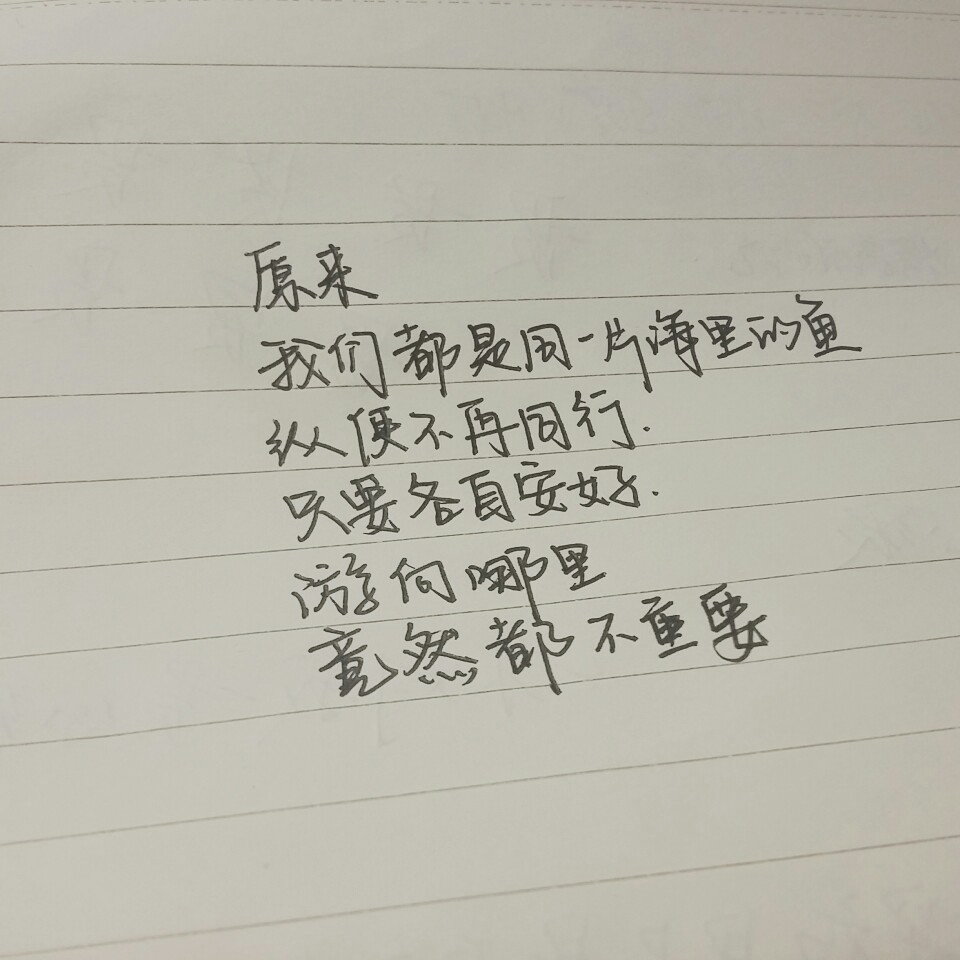 原来
我们都是同一片海里的鱼
纵使不再同行.
只要各自安好.
游向哪里
竟然都不重要